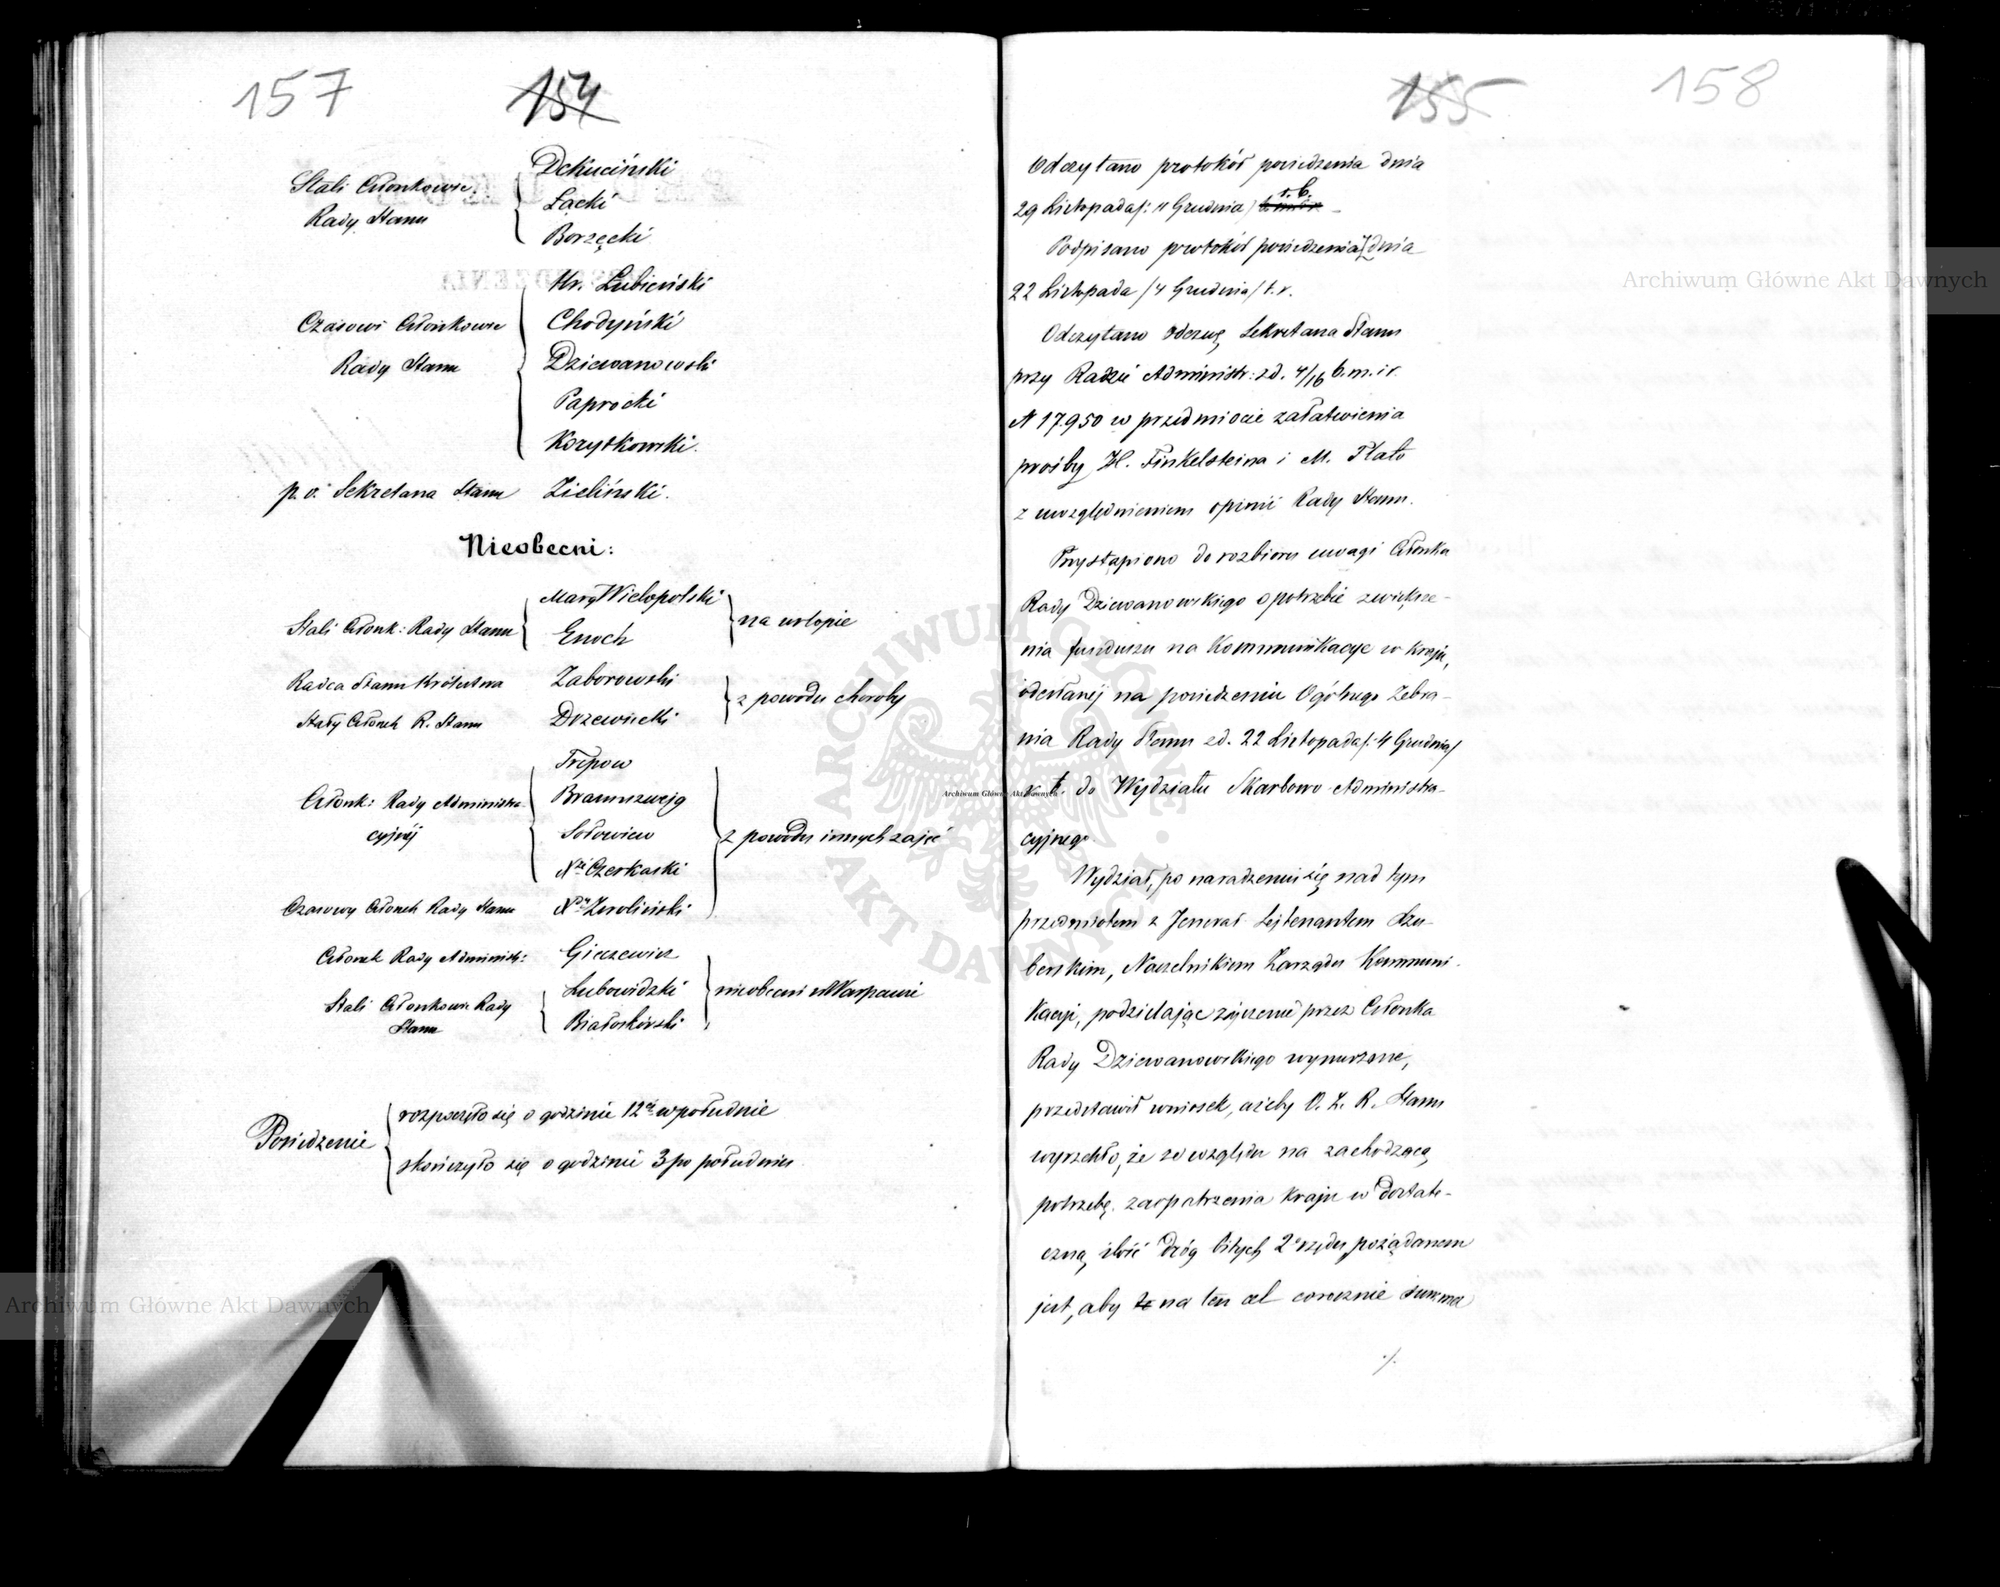 157
154
Stali Członkowie
Rady Stanu
Dekuciński
Łącki
Borzęcki
Czasowi Członkowie
Rady Stanu
Hr. Łubieński
Chodyński
Dziewanowski
Paprocki
Korytkowski.
p. o. Sekretarza Stanu Zieliński.
Nieobecni:
Stali Członk: Rady Stanu
Marg Wielopolski
Enoch
na urlopie
Radca Stanu Królestwa Zaborowski
Stały Członek R. Stanu Drzewiecki
z powodu choroby
Członk: Rady Administra-
cyjnéj
Trepow
Braunszwejg
Sołowiew
Xże Czerkaski
Czasowy Członek Rady Stanu X. Zwoliński
z powodu innych zajęć
Członek Rady Administr: Gieczewicz
Stali Członkowie Rady
Stanu
Lubowidzki
Białoskórski
nieobecni w Warszawie
Posiedzenie
rozpoczęło się o godzinie 12éj w południe
skończyło się o godzinie 3 po południu
155
158
Odczytano protokół posiedzenia dnia
29 Listopada /: 11 Grudnia/ r. b.
Podpisano protokół posiedzenia z dnia
22 Listopada /4 Grudnia/ t. r.
Odczytano odezwę Sekretarza Stanu
przy Radzie Administr: z d. 4/16 b. m. i r.
N 17.950 w przedmiocie załatwienia
prośby H. Finkelsteina i M. Płato
z uwzględnieniem opinii Rady Stanu.
Przystąpiono do rozbioru uwagi Członka
Rady Dziewanowskiego o potrzebie zwiększe-
nia funduszu na Kommunikacje w kraju,
odesłanéj na posiedzeniu Ogólnego Zebra-
nia Rady Stanu z d. 22 Listopada /: 4 Grudnia/
r. b. do Wydziału Skarbowo-Administra-
cyjnego.
Wydział, po naradzeniu się nad tym
przedmiotem z Jenerał Lejtenantem Szu-
berskim, Naczelnikiem Zarządu Kommuni-
kacji, podzielając życzenie przez Członka
Rady Dziewanowskiego wynurzone,
przedstawił wniosek, ażeby O. Z. R. Stanu
wyrzekło, że ze względu na zachodzącą
potrzebę zaopatrzenia Kraju w dostate-
czną ilość dróg bitych 2o rzędu, pożądanem
jest, aby na ten cel corocznie summa
./.
Archiwum Główne Akt Dawnych
Archiwum Główne Akt Dawnych
Archiwum Główne Akt Dawnych
ARCHIWUM GŁÓWNE AKT DAWNYCH